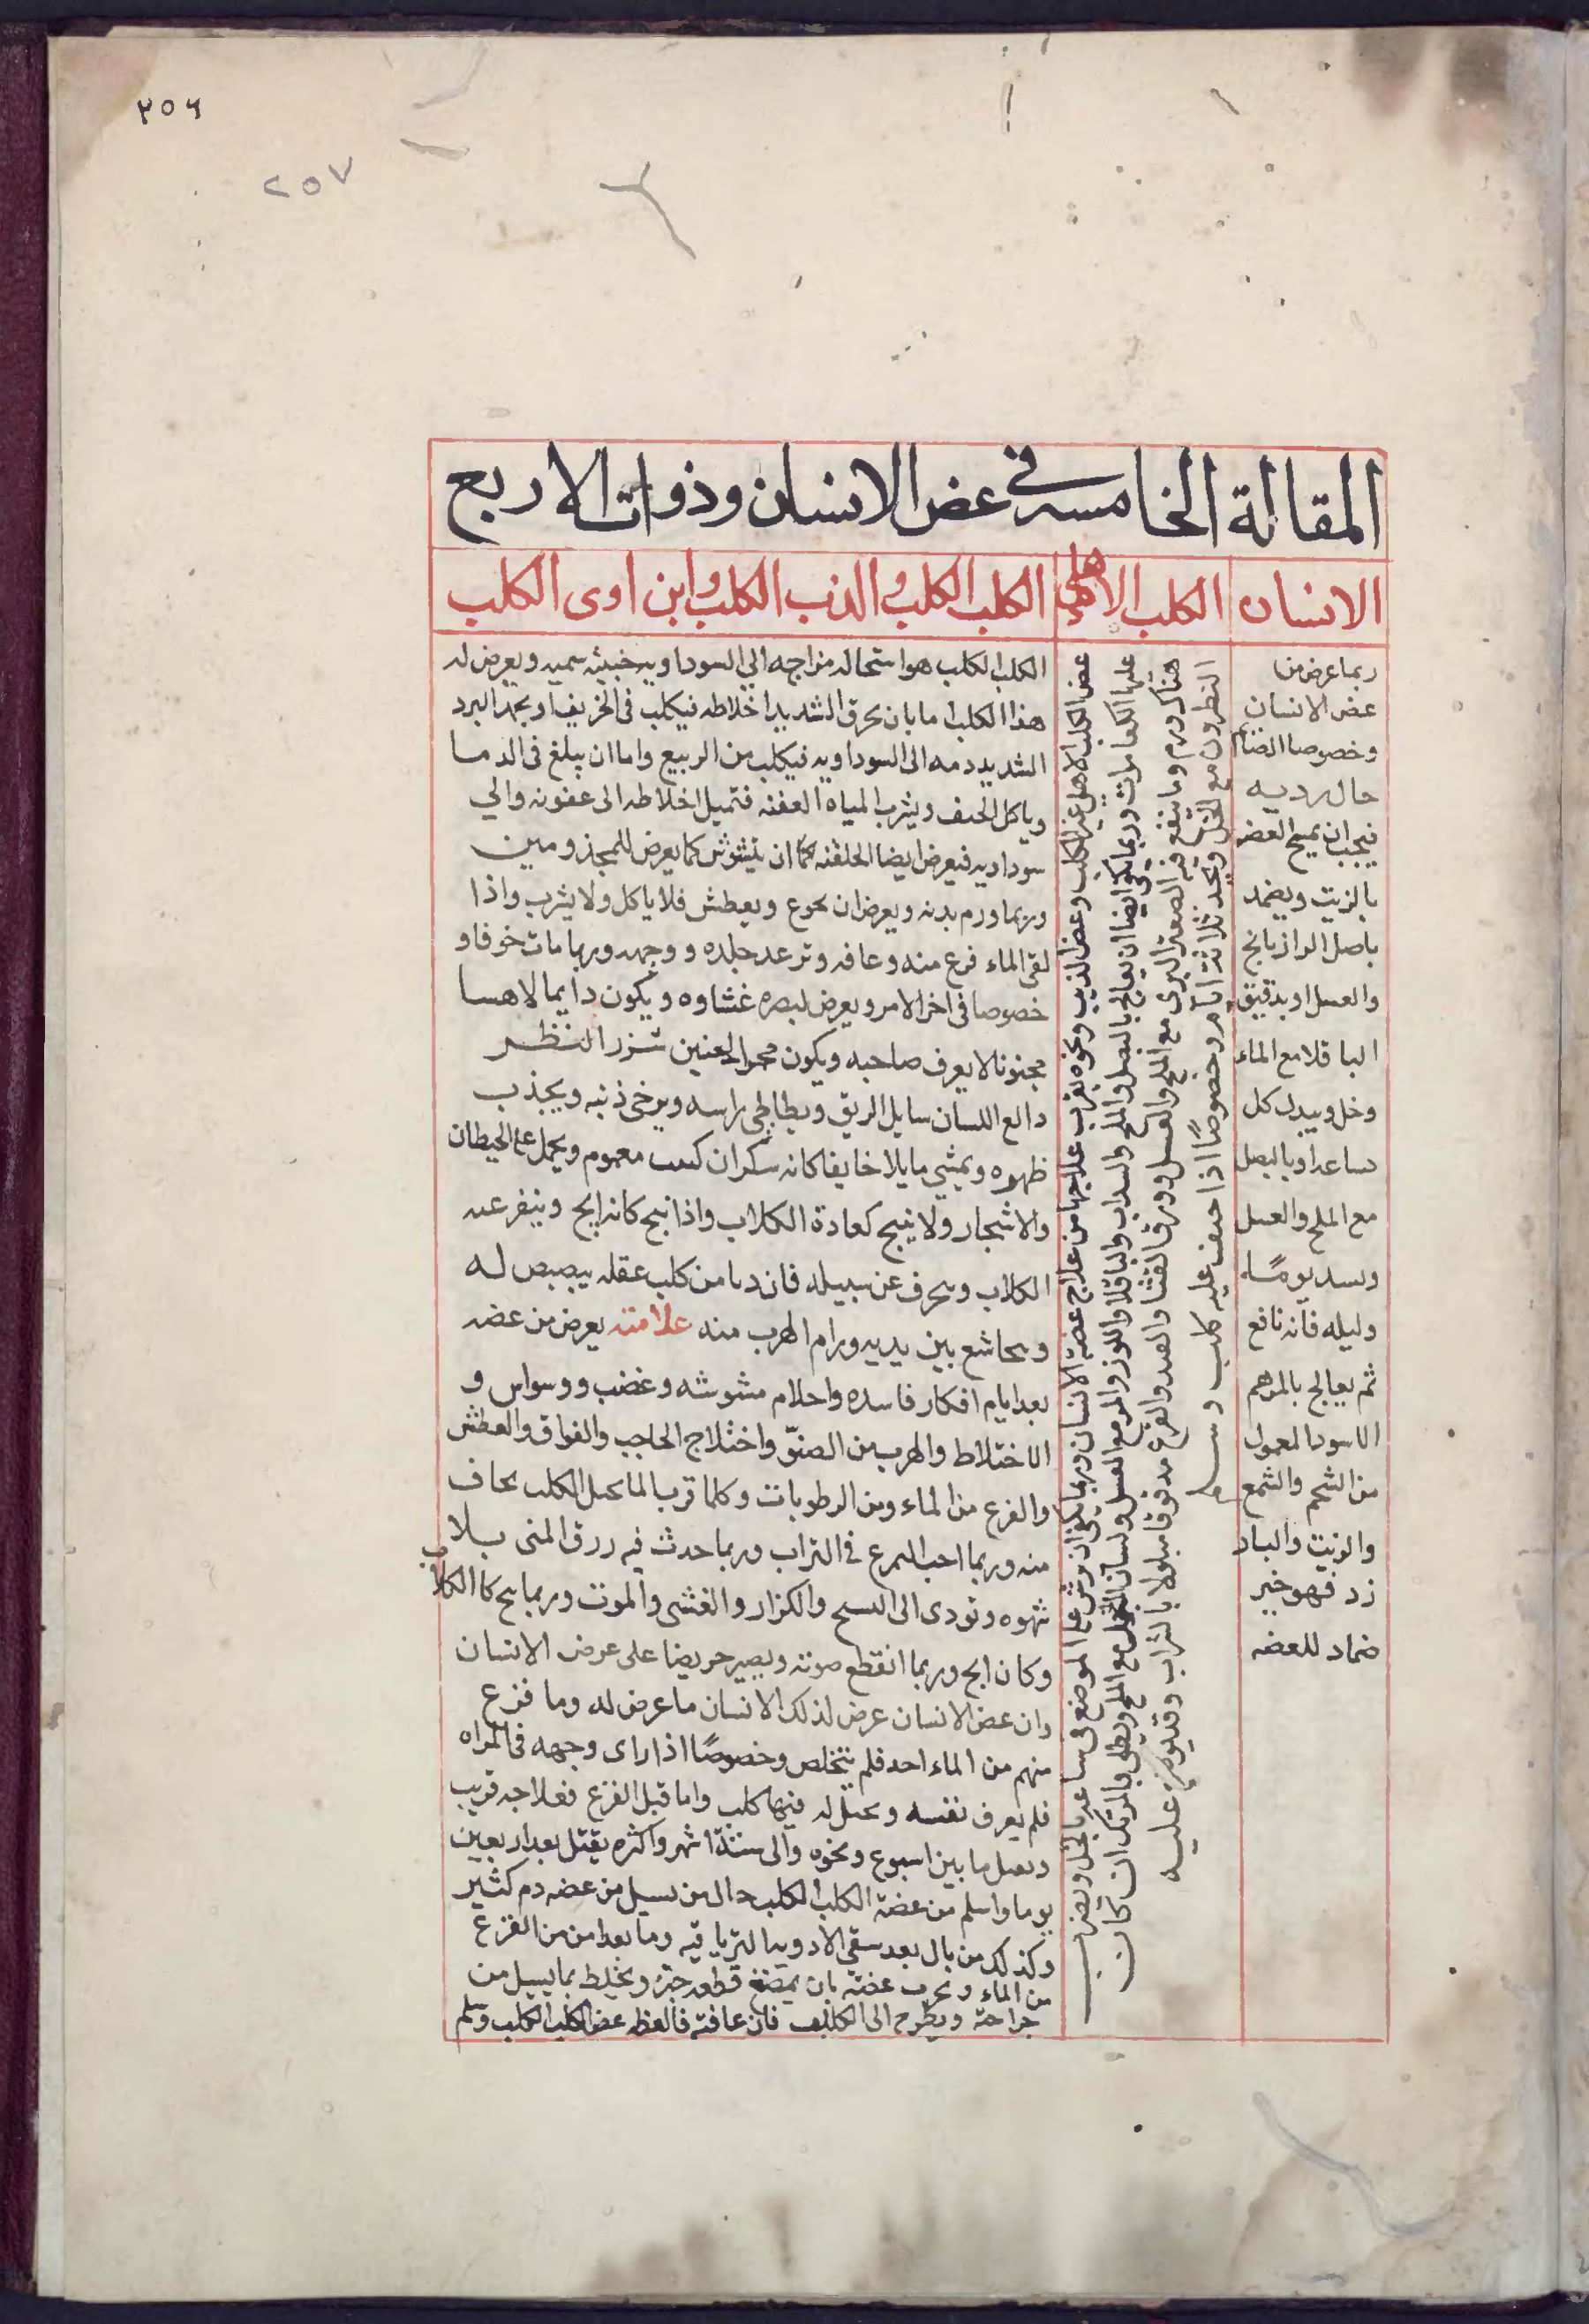 ٢٥٦
٢٥٧
المقالة الخامسه في عض الانسان وذوات الاربع
الانسان
الكلب الاهلي
الكلب الكلب والذئب الكلب وابن اوى الكلب
ربما عرض من
عض الانسان
وخصوصا الصائم
حال رديه
فيجب ان يمسح العضه
بالزيت ويضمد
باصل الرازيانج
والعسل او بدقيق
الباقلا مع الماء
وخل ويبدل كل
ساعه او بالبصل
مع الملح والعسل
ويسد يومًا
وليله فانه نافع
ثم يعالج بالمرهم
الاسود المعمول
من الشحم والشمع
والزيت والبار
زد فهو خير
ضماد للعضه
عض الكلب الاهلي غير الكلب وعض الذيب ونحوه يقرب علاجها من علاج عضة الانسان وربما يكفى ان يرش على الموضع في ساعه بالخل ويضرب
عليها الكف مرات وربما كفى ايضا ان يعالج بالبصل والملح والسداب والباقلا واللوز والمر مع العسل ولسان الحمل مع الملح ويطلى بالمرتك ان كان
هناك ورم وما ينفع فيه الصعتر البرى مع الملح والعسل وورق القثا والصدو والقرع مدقوقا مبلولا بالشراب وقد يوضع عليه
النطرون مع الخل ويجدد ثلاثة ايام وخصوصًا اذا خيف عليه كلب وسم
الكلب الكلب هو استحاله مزاجه الي السوداويه خبيثه سميه ويعرض له
هذا الكلب اما بان يحرق الشديد اخلاطه فيكلب في الخريف او يجمد البرد
الشديد دمه الى السوداويه فيكلب من الربيع واما ان يبلغ في الدما
وياكل الجيف ويشرب المياه العفنه فتميل اخلاطه الى عفونه والي
سوداديه فيعرض ايضا الخلقته كما ان يتشوش كما يعرض للمجذومين
وربما ورم بدنه ويعرض ان يجوع ويعطش فلا ياكل ولا يشرب واذا
لقى الماء فزع منه وعافه وترعد جلده ووجهه وربما مات خوفا و
خصوصا في اخر الامر ويعرض لبصره غشاوه ويكون دايما لاهسا
مجنونا لا يعرف صاحبه ويكون محمر العينين شزر النظر
دالع اللسان سايل الريق ويطاطي راسه ويرخى ذنبه ويجذب
ظهره ويمشي مايلا خايفا كانه سكران كئيب معموم ويحمل على الحيطان
والاشجار ولا ينبح كعادة الكلاب واذا نبح كان ابح وينفر عنه
الكلاب وينحرف عن سبيله فان دنا من كلب عقله يبصبص له
وتخاشع بين يديه ورام الهرب منه علامته يعرض من عضه
بعد ايام افكار فاسده واحلام مشوشه وغضب ووسواس و
الاختلاط والهرب من الضوّ واختلاج الحاجب والفواق والعطش
والفزع من الماء ومن الرطوبات وكلما قرب الماء تخيل الكلب بخاف
منه وربما احب التمرغ في التراب وربما حدث فيه زرق المني بلا
شهوه وتودى الى التشنج والكزاز والغشى والموت وربما نبح كالكلاب
وكان ابح وربما انقطع صوته ويصير حريصا على عض الانسان
وان عض الانسان عرض لذلك الانسان ما عرض له وما فزع
منهم من الماء احد فلم يتخلص وخصوصًا اذا راى وجهه في المراه
فلم يعرف نفسه وتخيل له فيها كلب واما قبل الفزع فعلاجه قريب
ويعمل ما بين اسبوع ونحوه والى ستة اشهر واكثره يقتل بعد اربعين
يوما واسلم من عضة الكلب الكلب حال من يسيل من عضه دم كثير
وكذلك من بال بعد سقي الادويه الترياقيه وما بعد امن من الفزع
من الماء ويجرب عضته بان يمضغ قطعه خبز ويخلط بما يسيل من
جراحة ويطرح الى الكلاب فان عافته فالعظه عض الكلب الكلب وسلم